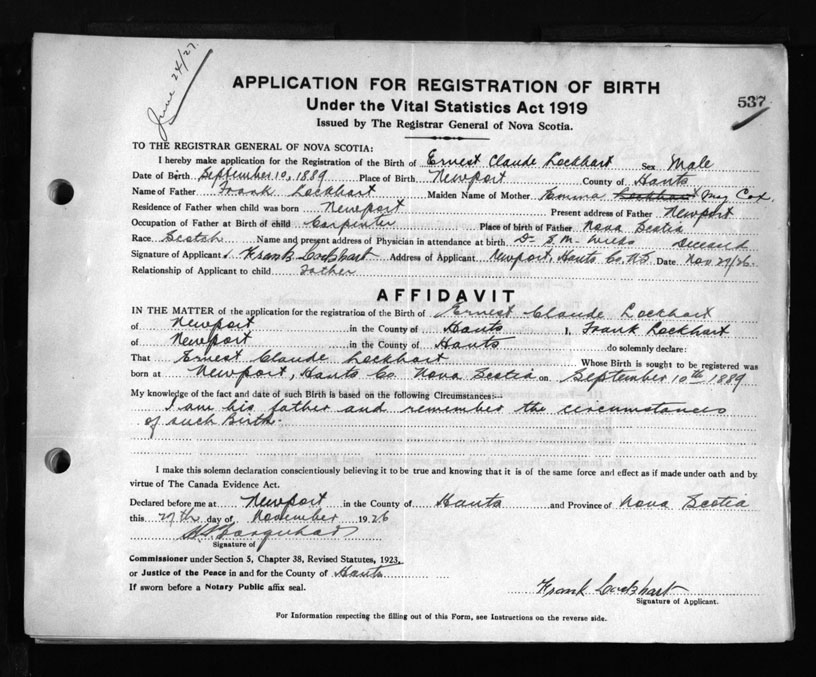 June 24/27.
APPLICATION FOR REGISTRATION OF BIRTH
537
Under the Vital Statistics Act 1919
Issued by The Registrar General of Nova Scotia.
TO THE REGISTRAR GENERAL OF NOVA SCOTIA:
I hereby make application for the Registration of the Birth of Ernest Claude Lockhart Sex Male
Date of Birth September 10, 1889 Place of Birth Newport County of Hants
Name of Father Frank Lockhart Maiden Name of Mother Emma Lockhart May Cox.
Residence of Father when child was born Newport Present address of Father Newport
Occupation of Father at Birth of child Carpinter Place of birth of Father Nova Scotia
Race Scotch Name and present address of Physician in attendance at birth Dr
Signature of Applicant Frank Lockhart Address of Applicant Newport, Hants Co. N.S. Date Nov 27/26.
Relationship of Applicant to child Father
AFFIDAVIT
IN THE MATTER of the application for the registration of the Birth of Ernest Claude Lockhart
of Newport in the County of Hants I, Frank Lockhart
of Newport in the County of Hants do solemnly declare:
That Ernest Claude Lockhart Whose Birth is sought to be registered was
born at Newport, Hants Co. Nova Scotia on September 10th 1889
My knowledge of the fact and date of such Birth is based on the following Circumstances:--
I am his father and remember the circumstances
of such Birth.
I make this solemn declaration conscientiously believing it to be true and knowing that it is of the same force and effect as if made under oath and by
virtue of The Canada Evidence Act.
Declared before me at Newport in the County of Hants and Province of Nova Scotia
this 27th day of November 1926
Signature of
Commissioner under Section 5, Chapter 38, Revised Statutes, 1923,
or Justice of the Peace in and for the County of Hants
If sworn before a Notary Public affix seal.
Frank Lockhart
Signature of Applicant.
For Information respecting the filling out of this Form, see Instructions on the reverse side.